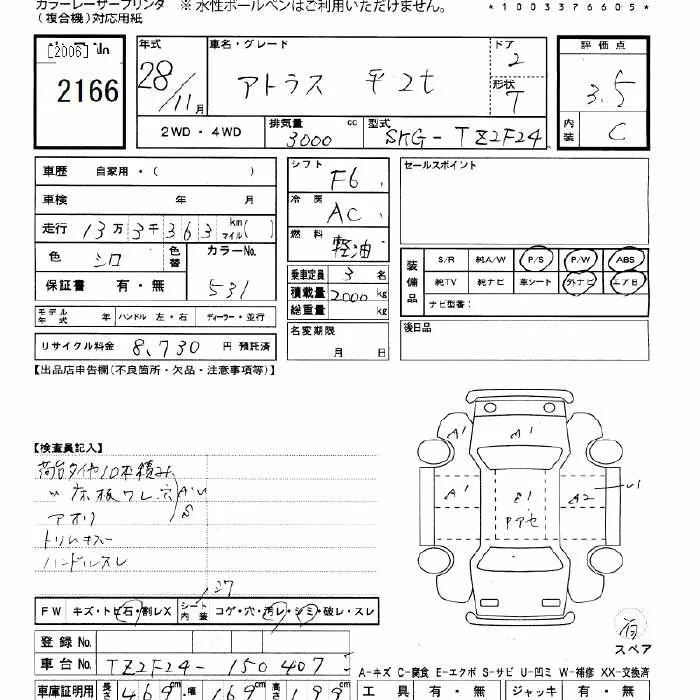 カラーレーザープリンタ ※ 水性ボールペンはご利用いただけません。 *1003376605*
(複合機)対応用紙
2166
年式 28/11月
車名・グレード アトラス 平 2t
ドア 2
形状 T
評価点 3.5
内装 C
2WD・4WD
排気量 3000 cc
型式 SKG-TZ2F24
車歴 自家用・( )
車検 年 月
走行 13万3千363 km マイル( )
色 シロ 色替 カラーNo. 531
保証書 有・無
シフト F6
冷房 AC
燃料 軽油
乗車定員 3 名
積載量 2000 kg
総重量 kg
セールスポイント
装備品
S/R 純A/W P/S P/W ABS
純TV 純ナビ 革シート 外ナビ エアB
ナビ型番:
モデル年式 年 ハンドル 左・右 ディーラー・並行
名変期限 月 日
後日品
リサイクル料金 8,730 円 預託済
【出品店申告欄(不良箇所・欠品・注意事項等)】
【検査員記入】
荷台タイヤ10本積み
〃 床板ワレ穴 A・U
アオリ S
トリムキズ
ハンドルスレ
27
FW キズ・トビ石・割レX シート内装 コゲ・穴・汚レ・シミ・破レ・スレ
A1
A1
A1
E1
A2
U1
Pアセ
有
スペア
登録No.
車台No. TZ2F24-150407
A-キズ C-腐食 E-エクボ S-サビ U-凹ミ W-補修 XX-交換済
車庫証明用 長さ 469 cm・幅 169 cm 高さ 199 cm
工具 有・無 ジャッキ 有・無